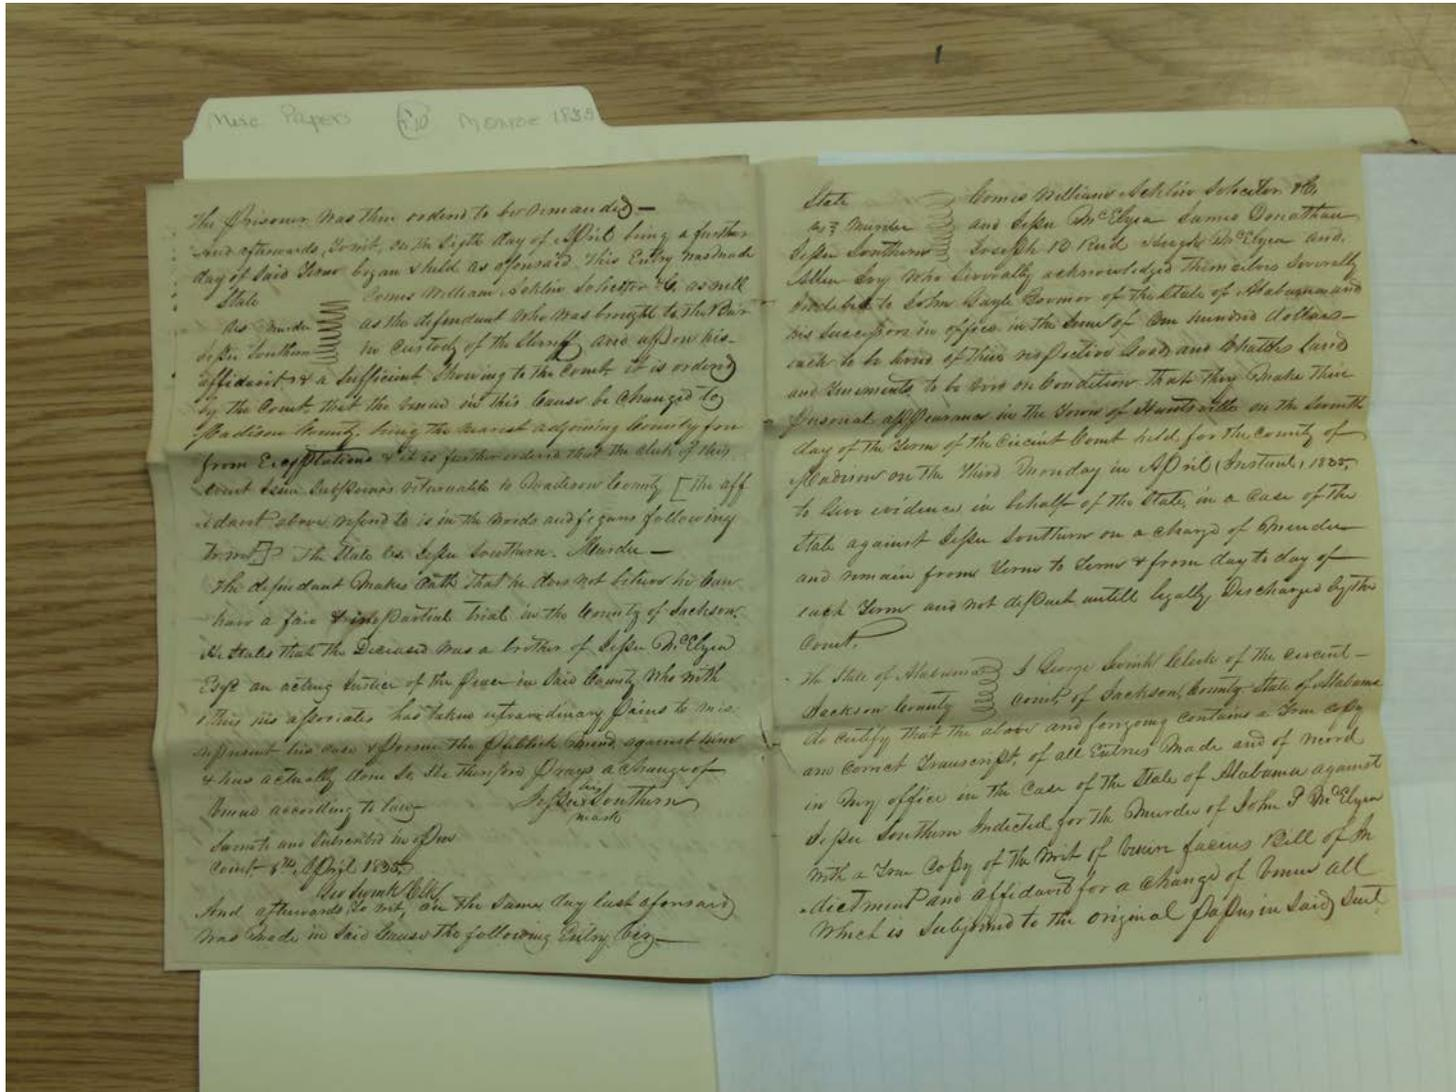 Misc Papers MONROE 1835
The Prisoner was then ordered to be remanded —
And afterwards, towit, on the Sixth day of April being a further
day of Said Term began & held as aforesaid This Entry was made
State
vs Murder
Jesse Southern
Comes William Acklin Solicitor &C. as well
as the defendant who was brought to the Bar
in Custody of the Sheriff and upon his
affidavit & a Sufficient Showing to the Court it is ordered
by the Court, that the venue in this Cause be changed to
Madison County, being the nearest adjoining County free
from Exceptations & it is further ordered that the clerk of this
court Issue Subpoenas returnable to Madison County [ the aff
idavit above referd to is in the words and figures following
towit] The State vs. Jesse Southern. Murder —
The defendant Makes Oath that he does not believe he Can
have a fair & impartial trial in the County of Jackson.
He States that the Deceased was a brother of Jesse McElyea
Esqr an acting Justice of the Peace in Said County who with
his associates has taken extraordinary Pains to mis
represent his case & the Publick mind against him
& has actually done So, He therefore Prays a change of
venue according to law
Jesse his Southern
mark
Sworn to and Subscribed in open
Court 6th April 1835
Geo Swink Clk
And afterwards, to wit, on the Same day last aforesaid
was Made in Said Cause the following Entry
State
vs Murder
Jesse Southern
Comes William Acklin Solicitor &C.
and Jesse McElyea James Donathan
Joseph Hugh McElyea and
Allen who Severally acknowledged themselves Severally
indebted to John Gayle Governor of the State of Alabama and
his Successors in office in the Sum of One hundred dollars
each to be levied of their respective Goods and Chattles land
and Tenements to be void on Condition that they Make their
Personal appearance in the Town of Huntsville on the Seventh
day of the Term of the Circuit Court held for the County of
Madison on the Third Monday in April (Instant) 1835,
to Give evidence in behalf of the State, in a Case of the
State against Jesse Southern on a charge of Murder
and remain from Term to Term & from day to day of
each Term and not depart untill legally Discharged by the
Court.
The State of Alabama
Jackson County
I George Swink Clerk of the circuit
court, of Jackson County State of Alabama
do certify that the above and forgoing contains a True copy
and correct Transcript, of all Entries Made and of record
in My office in the Case of the State of Alabama against
Jesse Southern Indicted for the Murder of John P McElyea
with a True Copy of the Writ of venire facias Bill of In
dictment and affidavit for a change of venue all
which is Subjoind to the original papers in Said Suit